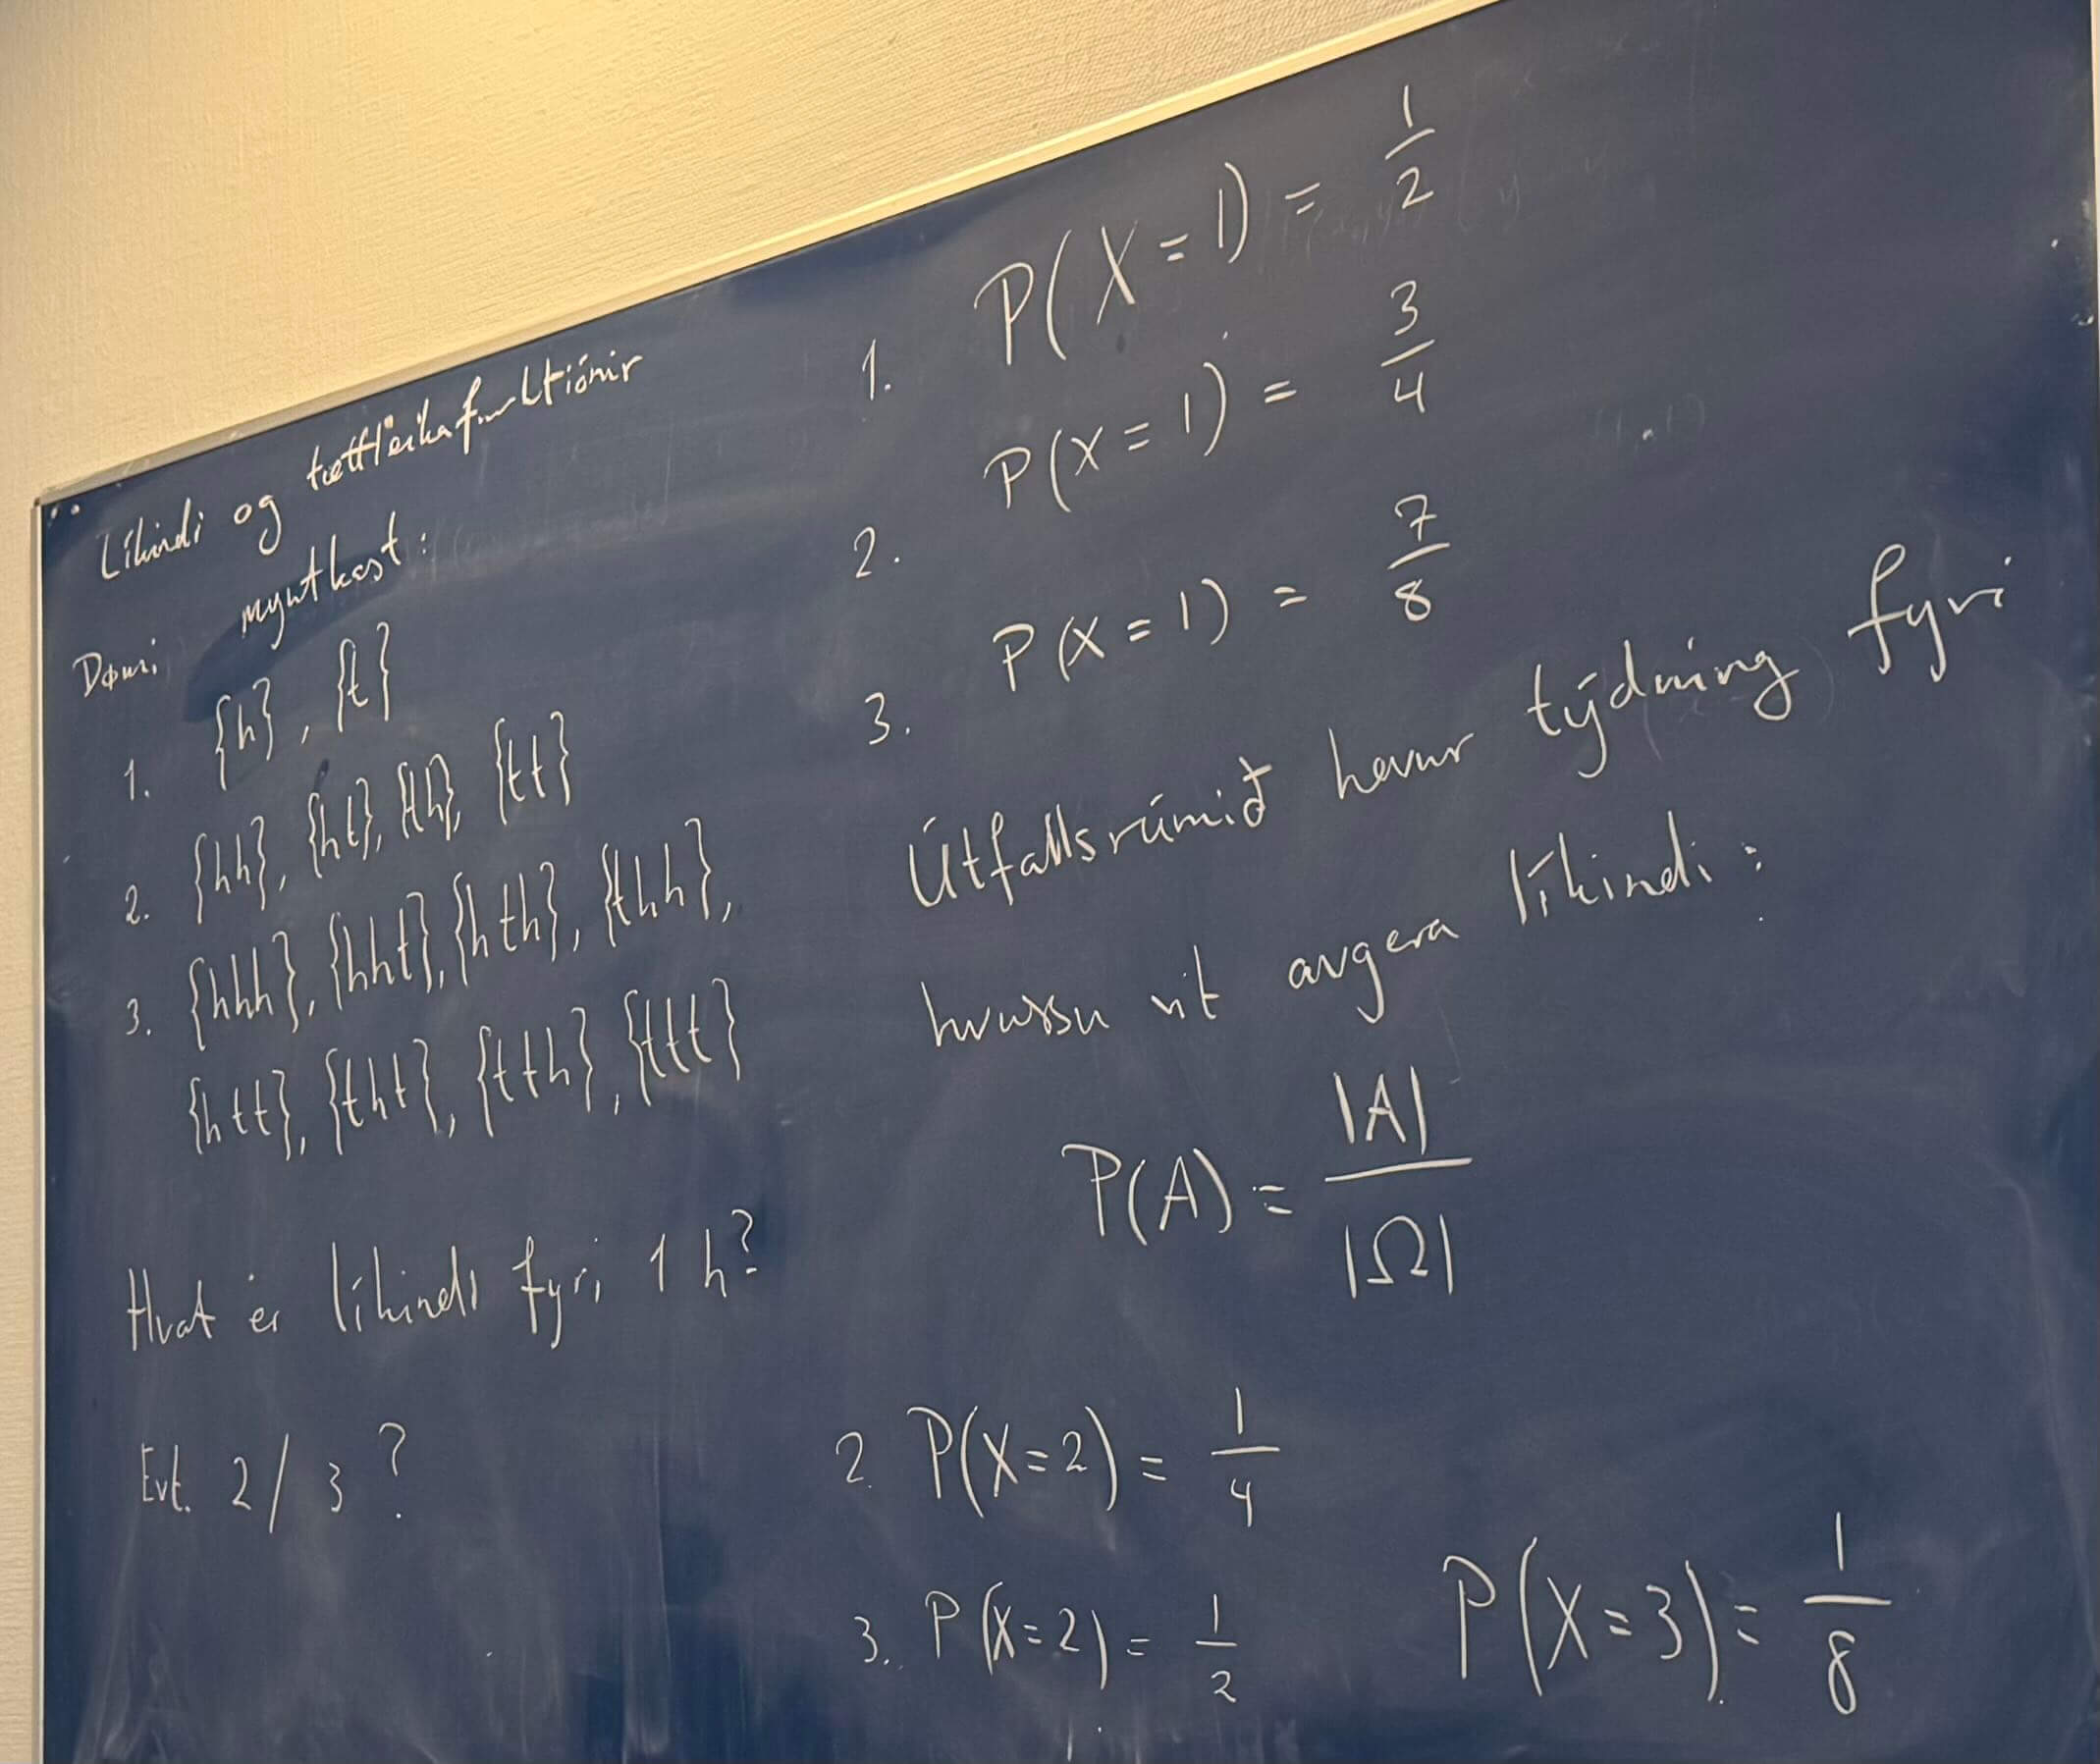 Líkindi og tættleikafunktiónir
Dømi myntkast:
1. {h}, {t}
2. {hh}, {ht}, {th}, {tt}
3. {hhh}, {hht}, {hth}, {thh},
{htt}, {tht}, {tth}, {ttt}
Hvat er líkindi fyri 1 h?
Evt. 2/3?
1. P(X=1) = 1/2
2. P(X=1) = 3/4
3. P(X=1) = 7/8
Útfallsrúmið hevur týdning fyri
hvussu vit avgera líkindi:
P(A) = |A|/|Ω|
2. P(X=2) = 1/4
3. P(X=2) = 1/2 P(X=3) = 1/8